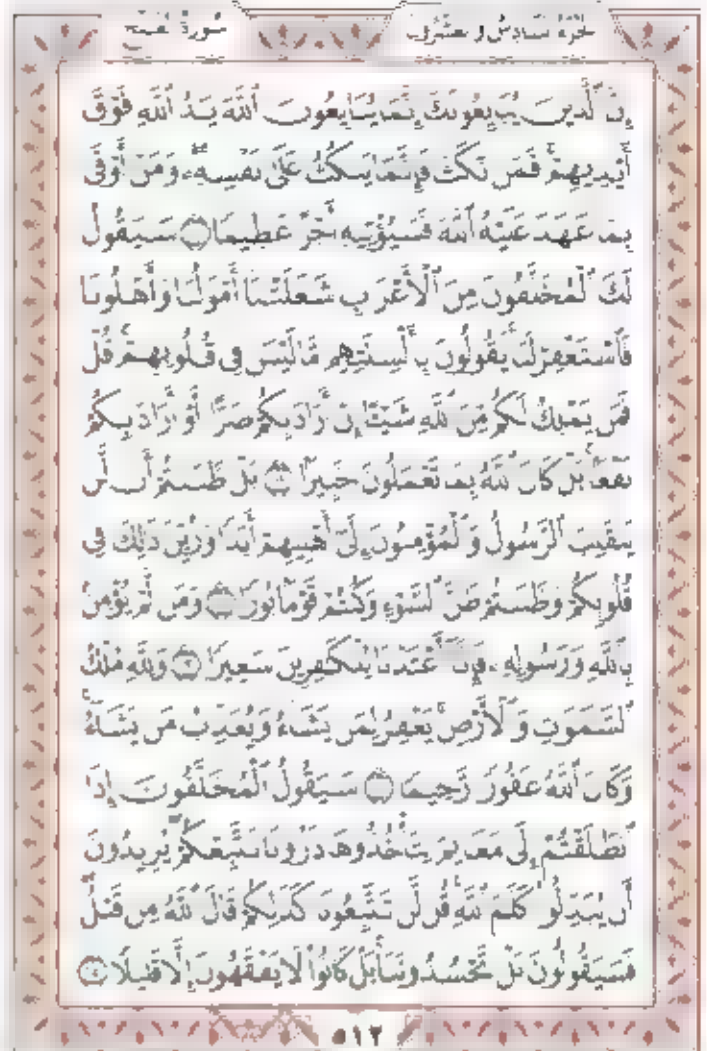 سورة الفتح
الجزء السادس و عشرون
إِنَّ ٱلَّذِينَ يُبَايِعُونَكَ إِنَّمَا يُبَايِعُونَ ٱللَّهَ يَدُ ٱللَّهِ فَوْقَ
أَيْدِيهِمْ فَمَن نَّكَثَ فَإِنَّمَا يَنكُثُ عَلَىٰ نَفْسِهِۦ وَمَنْ أَوْفَىٰ
بِمَا عَٰهَدَ عَلَيْهُ ٱللَّهَ فَسَيُؤْتِيهِ أَجْرًا عَظِيمًا ١٠ سَيَقُولُ
لَكَ ٱلْمُخَلَّفُونَ مِنَ ٱلْأَعْرَابِ شَغَلَتْنَا أَمْوَٰلُنَا وَأَهْلُونَا
فَٱسْتَغْفِرْ لَنَا يَقُولُونَ بِأَلْسِنَتِهِم مَّا لَيْسَ فِى قُلُوبِهِمْ قُلْ
فَمَن يَمْلِكُ لَكُم مِّنَ ٱللَّهِ شَيْـًٔا إِنْ أَرَادَ بِكُمْ ضَرًّا أَوْ أَرَادَ بِكُمْ
نَفْعًۢا بَلْ كَانَ ٱللَّهُ بِمَا تَعْمَلُونَ خَبِيرًۢا ١١ بَلْ ظَنَنتُمْ أَن لَّن
يَنقَلِبَ ٱلرَّسُولُ وَٱلْمُؤْمِنُونَ إِلَىٰٓ أَهْلِيهِمْ أَبَدًا وَزُيِّنَ ذَٰلِكَ فِى
قُلُوبِكُمْ وَظَنَنتُمْ ظَنَّ ٱلسَّوْءِ وَكُنتُمْ قَوْمًۢا بُورًا ١٢ وَمَن لَّمْ يُؤْمِنۢ
بِٱللَّهِ وَرَسُولِهِۦ فَإِنَّآ أَعْتَدْنَا لِلْكَٰفِرِينَ سَعِيرًا ١٣ وَلِلَّهِ مُلْكُ
ٱلسَّمَٰوَٰتِ وَٱلْأَرْضِ يَغْفِرُ لِمَن يَشَآءُ وَيُعَذِّبُ مَن يَشَآءُ
وَكَانَ ٱللَّهُ غَفُورًا رَّحِيمًا ١٤ سَيَقُولُ ٱلْمُخَلَّفُونَ إِذَا
ٱنطَلَقْتُمْ إِلَىٰ مَغَانِمَ لِتَأْخُذُوهَا ذَرُونَا نَتَّبِعْكُمْ يُرِيدُونَ
أَن يُبَدِّلُوا۟ كَلَٰمَ ٱللَّهِ قُل لَّن تَتَّبِعُونَا كَذَٰلِكُمْ قَالَ ٱللَّهُ مِن قَبْلُ
فَسَيَقُولُونَ بَلْ تَحْسُدُونَنَا بَلْ كَانُوا۟ لَا يَفْقَهُونَ إِلَّا قَلِيلًا ١٥
٥١٢